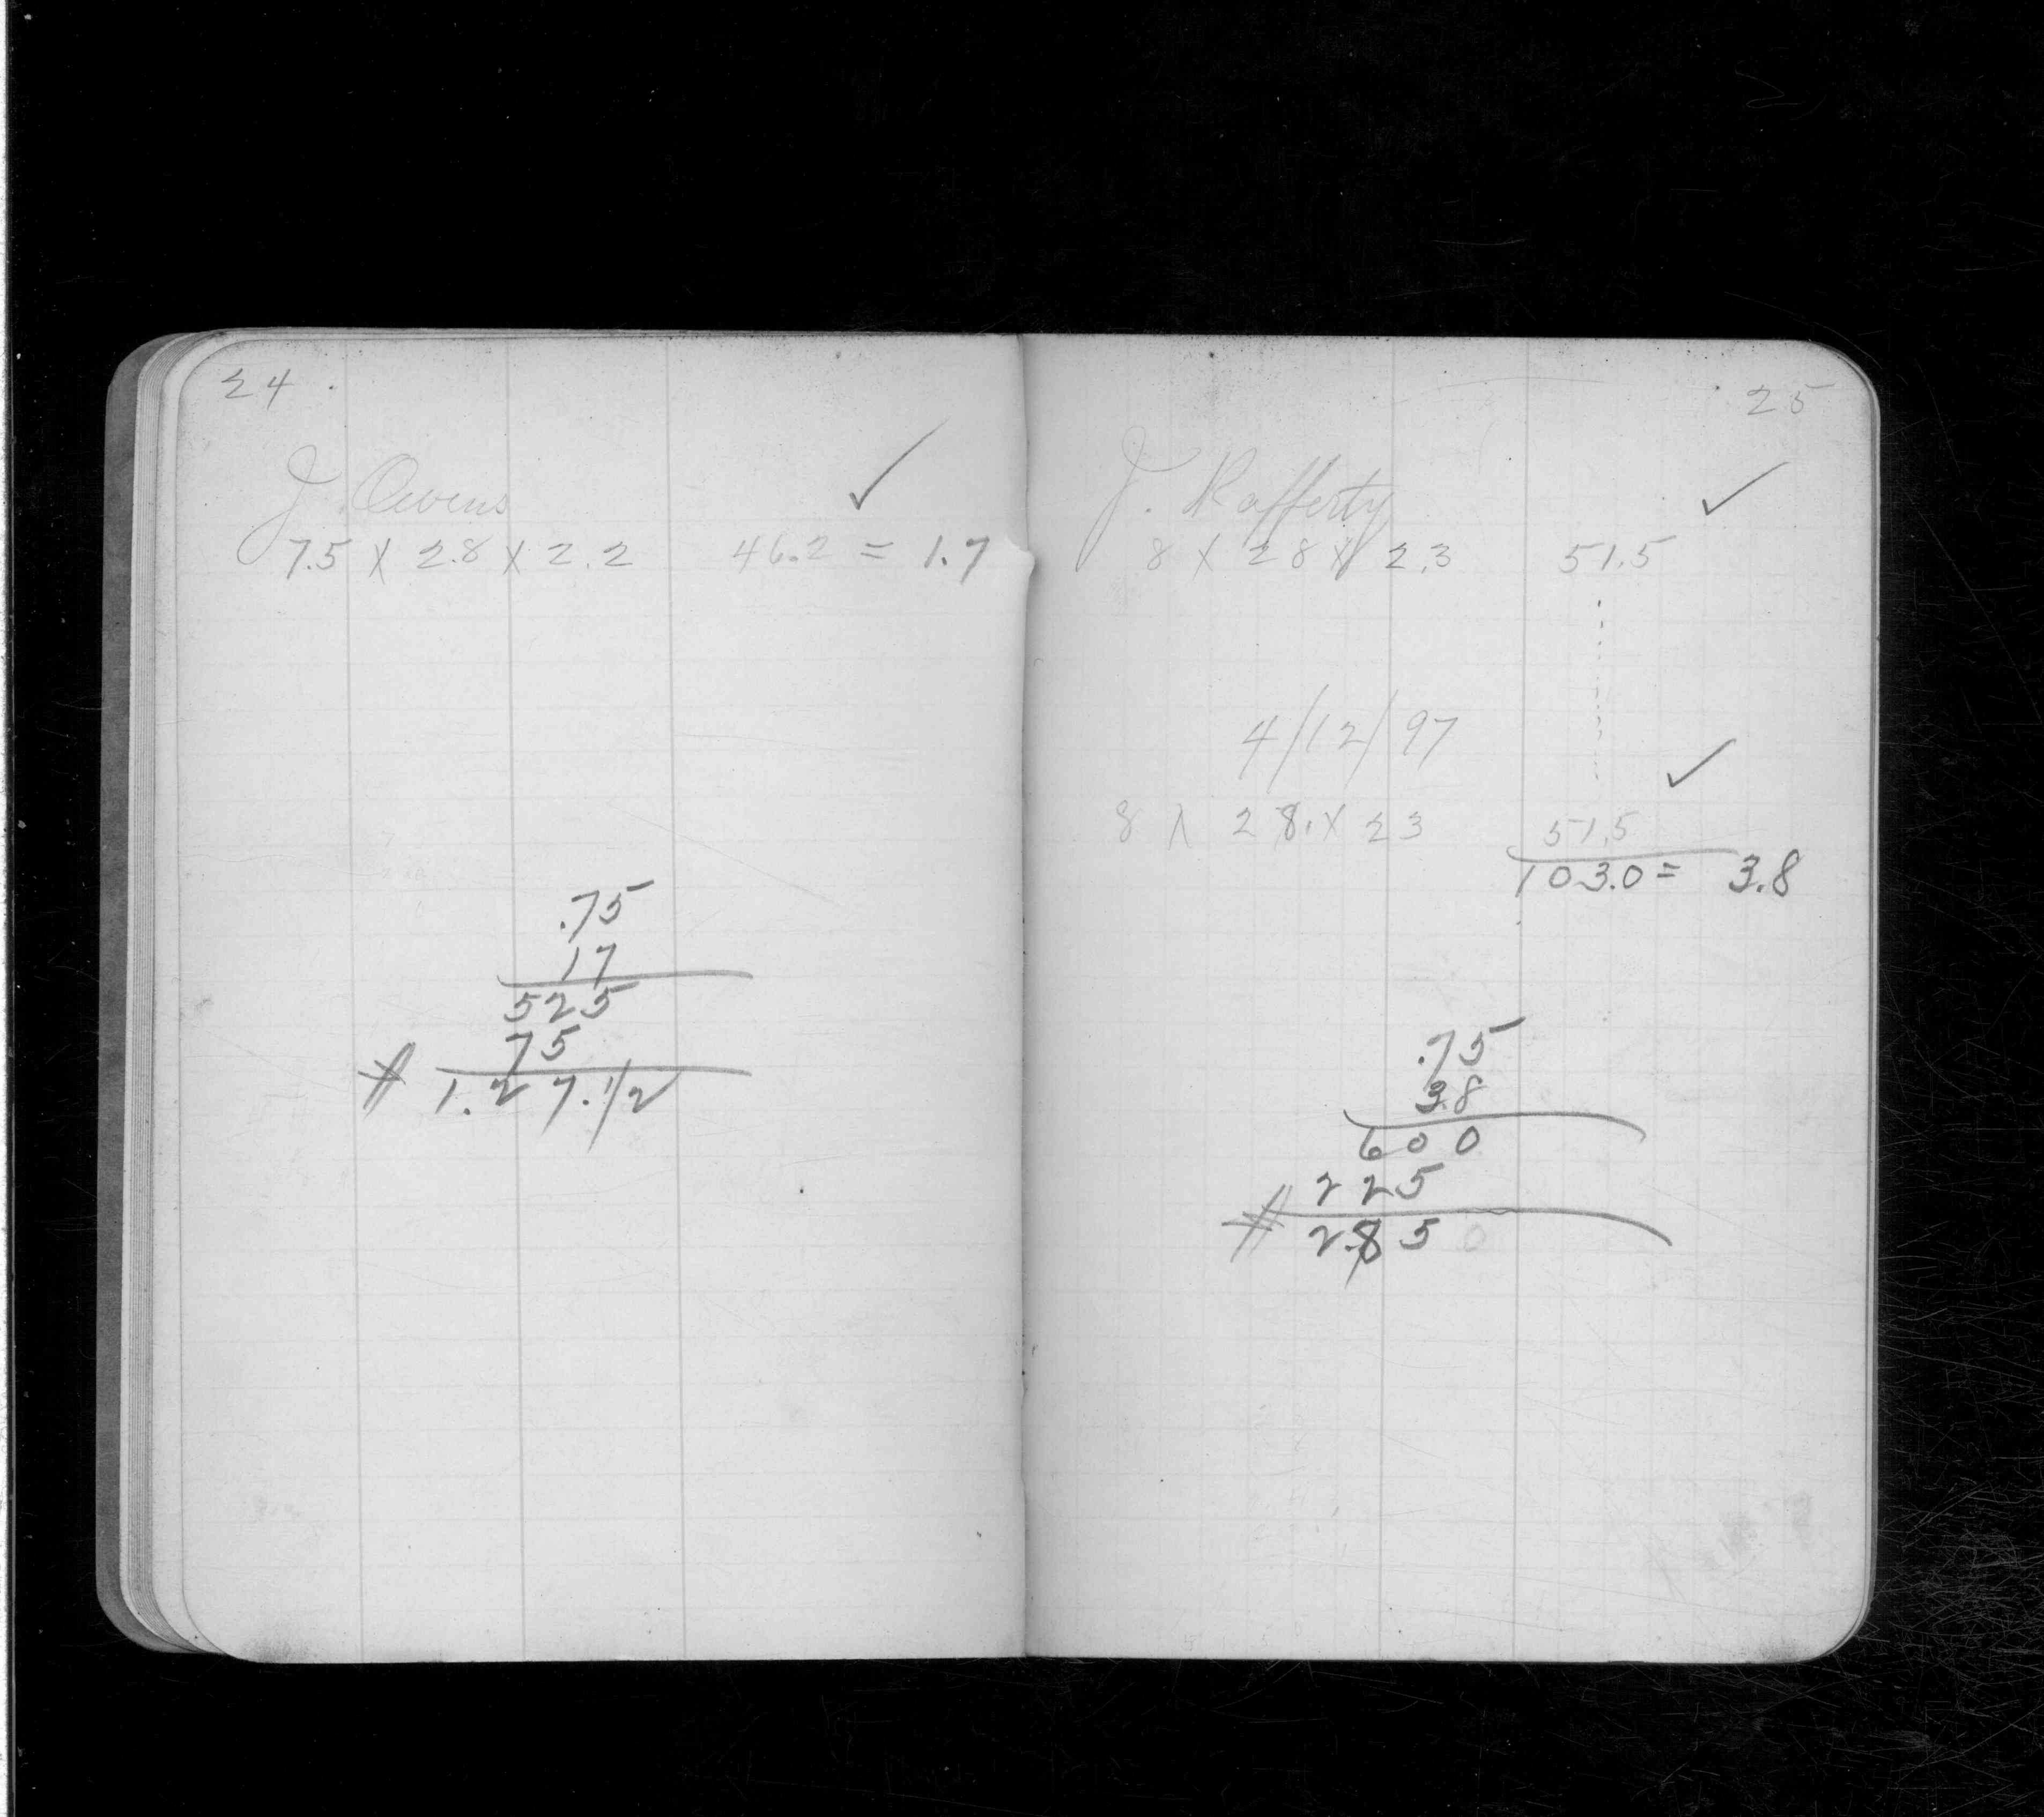 24
J. Owens ✓
7.5 X 2.8 X 2.2 46.2 = 1.7
.75
17
525
75
$ 1.27.1/2
25
J. Rafferty ✓
8 X 28 X 2.3 51.5
4/12/97 ✓
8 X 28. X 23 51.5
103.0 = 3.8
.75
3.8
600
225
$ 2.850